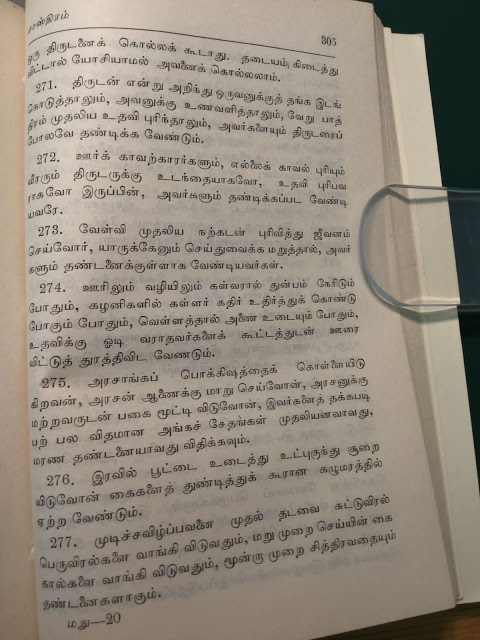 சாஸ்திரம் 305
ஒரு திருடனைக் கொல்லக் கூடாது. தடையம் கிடைத்து
விட்டால் யோசியாமல் அவனைக் கொல்லலாம்.
271. திருடன் என்று அறிந்து ஒருவனுக்குத் தங்க இடங்
கொடுத்தாலும், அவனுக்கு உணவளித்தாலும், வேறு பாத்
திரம் முதலிய உதவி புரிந்தாலும், அவர்களையும் திருடரைப்
போலவே தண்டிக்க வேண்டும்.
272. ஊர்க் காவற்காரர்களும், எல்லைக் காவல் புரியும்
வீரரும் திருடருக்கு உடந்தையாகவோ, உதவி புரிபவ
ராகவோ இருப்பின், அவர்களும் தண்டிக்கப்பட வேண்டி
யவரே.
273. வேள்வி முதலிய நற்கடன் புரிவித்து ஜீவனம்
செய்வோர், யாருக்கேனும் செய்துவைக்க மறுத்தால், அவர்
களும் தண்டனைக்குள்ளாக வேண்டியவர்கள்.
274. ஊரிலும் வழியிலும் கள்வரால் துன்பம் நேரிடும்
போதும், கழனிகளில் கள்ளர் கதிர் உதிர்த்துக் கொண்டு
போகும் போதும், வெள்ளத்தால் அணை உடையும் போதும்,
உதவிக்கு ஓடி வராதவர்களைக் கூட்டத்துடன் ஊரை
விட்டுத் துரத்திவிட வேண்டும்.
275. அரசாங்கப் பொக்கிஷத்தைக் கொள்ளையிடு
கிறவன், அரசன் ஆணைக்கு மாறு செய்வோன், அரசனுக்கு
மற்றவருடன் பகை மூட்டி விடுவோன், இவர்களைத் தக்கபடி
பற் பல விதமான அங்கச் சேதங்கள் முதலியனவாவது,
மரண தண்டனையாவது விதிக்கவும்.
276. இரவில் பூட்டை உடைத்து உட்புகுந்து சூறை
யிடுவோன் கைகளைத் துண்டித்துக் கூரான கழுமரத்தில்
ஏற்ற வேண்டும்.
277. முடிச்சவிழ்ப்பவனை முதல் தடவை சுட்டுவிரல்
பெருவிரல்களை வாங்கி விடுவதும், மறு முறை செய்யின் கை
கால்களை வாங்கி விடுவதும், மூன்றா முறை சித்திரவதையும்
தண்டனைகளாகும்.
மது—20